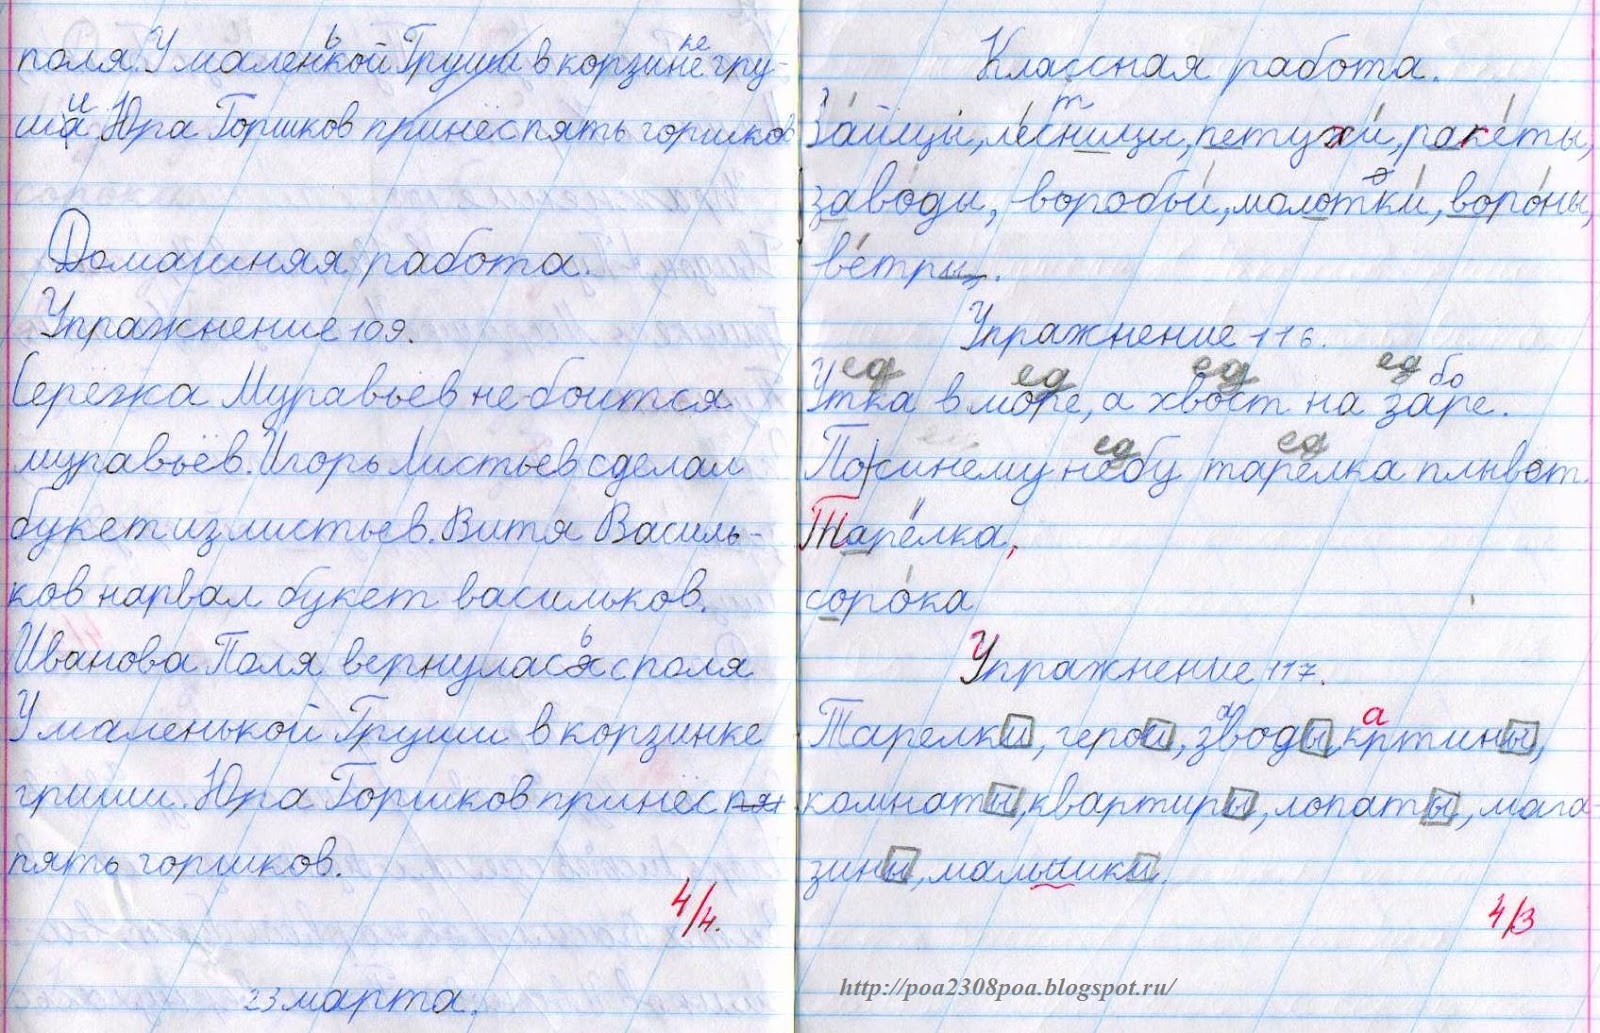 поля. У маленькой Груши в корзинке гру-
ши. Юра Горшков принёс пять горшков
Домашняя работа.
Упражнение 109.
Серёжка Муравьёв не боится
муравьёв. Игорь Листьев сделал
букет из листьев. Витя Василь-
ков нарвал букет васильков.
Иванова Поля вернулась с поля
У маленькой Груши в корзинке
груши. Юра Горшков принёс пят
пять горшков.
4/4.
23 марта.
Классная работа.
Зайцы, лестницы, петухи, ракеты,
заводы, воробьи, молотки, вороны,
ветры.
Упражнение 116.
ед ед ед ед
Утка в море, а хвост на заборе.
ед ед
По синему небу тарелка плывет.
Тарелка,
сорока
Упражнение 117.
Тарелки, герои, заводы, картины,
комнаты, квартиры, лопаты, мага-
зины, малышки.
4/3
http://poa2308poa.blogspot.ru/